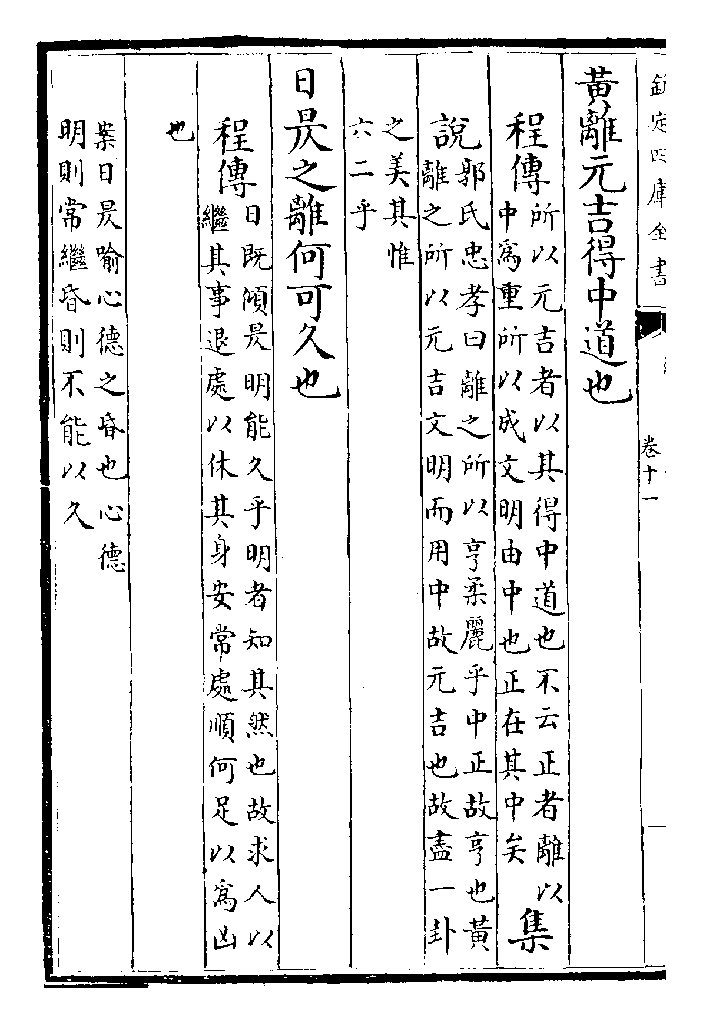 欽定四庫全書
卷十一
黃離元吉得中道也
程傳所以元吉者以其得中道也不云正者離以
中爲重所以成文明由中也正在其中矣
集
說郭氏忠孝曰離之所以亨柔麗乎中正故亨也黃
離之所以元吉文明而用中故元吉也故盡一卦
之美其惟
六二乎
日昃之離何可久也
程傳日既傾昃明能久乎明者知其然也故求人以
繼其事退處以休其身安常處順何足以爲凶
也
案日昃喻心德之昏也心德
明則常繼昏則不能以久